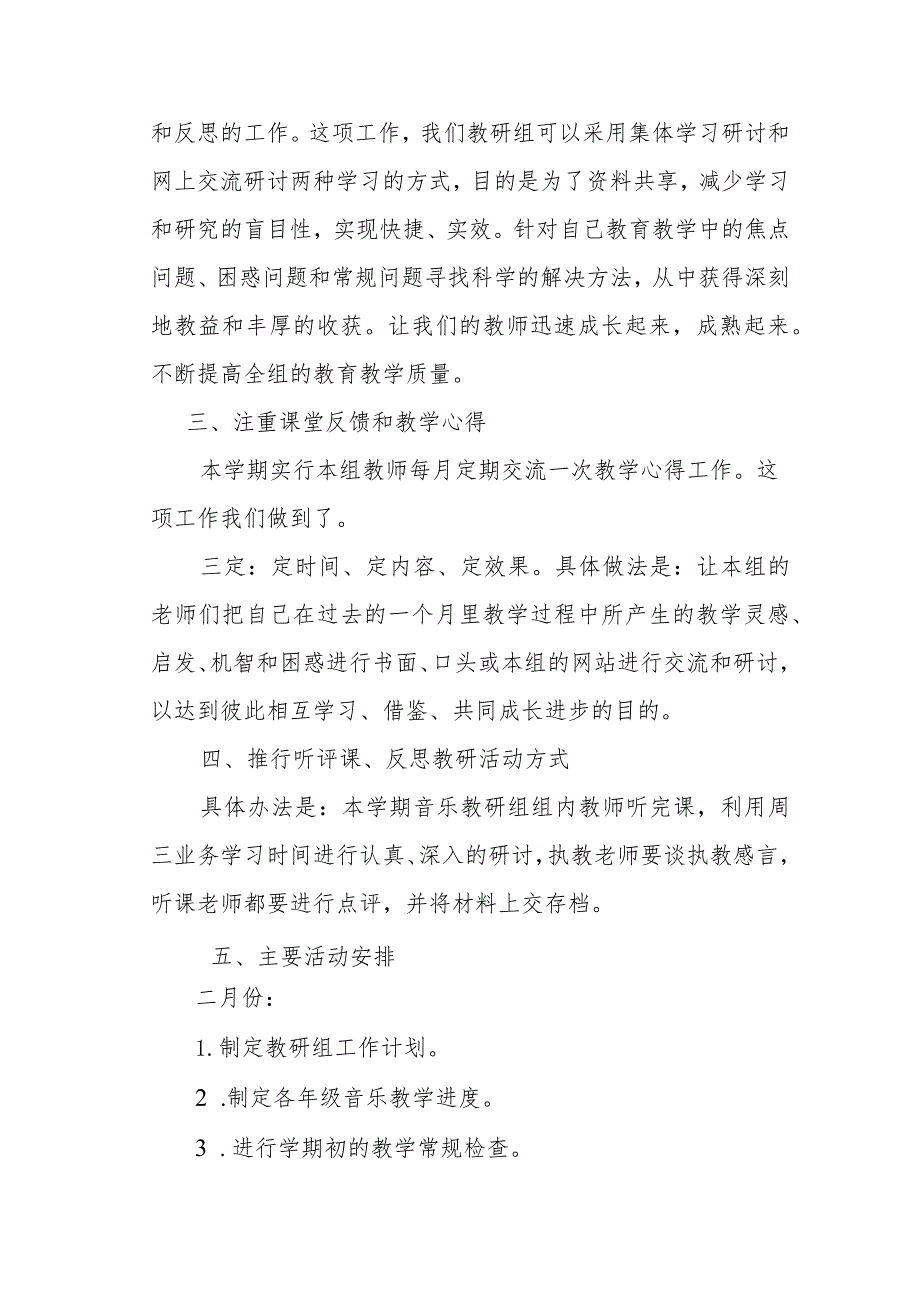 和反思的工作。这项工作，我们教研组可以采用集体学习研讨和
网上交流研讨两种学习的方式，目的是为了资料共享，减少学习
和研究的盲目性，实现快捷、实效。针对自己教育教学中的焦点
问题、困惑问题和常规问题寻找科学的解决方法，从中获得深刻
地教益和丰厚的收获。让我们的教师迅速成长起来，成熟起来。
不断提高全组的教育教学质量。
三、注重课堂反馈和教学心得
本学期实行本组教师每月定期交流一次教学心得工作。这
项工作我们做到了。
三定：定时间、定内容、定效果。具体做法是：让本组的
老师们把自己在过去的一个月里教学过程中所产生的教学灵感、
启发、机智和困惑进行书面、口头或本组的网站进行交流和研讨，
以达到彼此相互学习、借鉴、共同成长进步的目的。
四、推行听评课、反思教研活动方式
具体办法是：本学期音乐教研组组内教师听完课，利用周
三业务学习时间进行认真、深入的研讨，执教老师要谈执教感言，
听课老师都要进行点评，并将材料上交存档。
五、主要活动安排
二月份：
1.制定教研组工作计划。
2 .制定各年级音乐教学进度。
3 .进行学期初的教学常规检查。